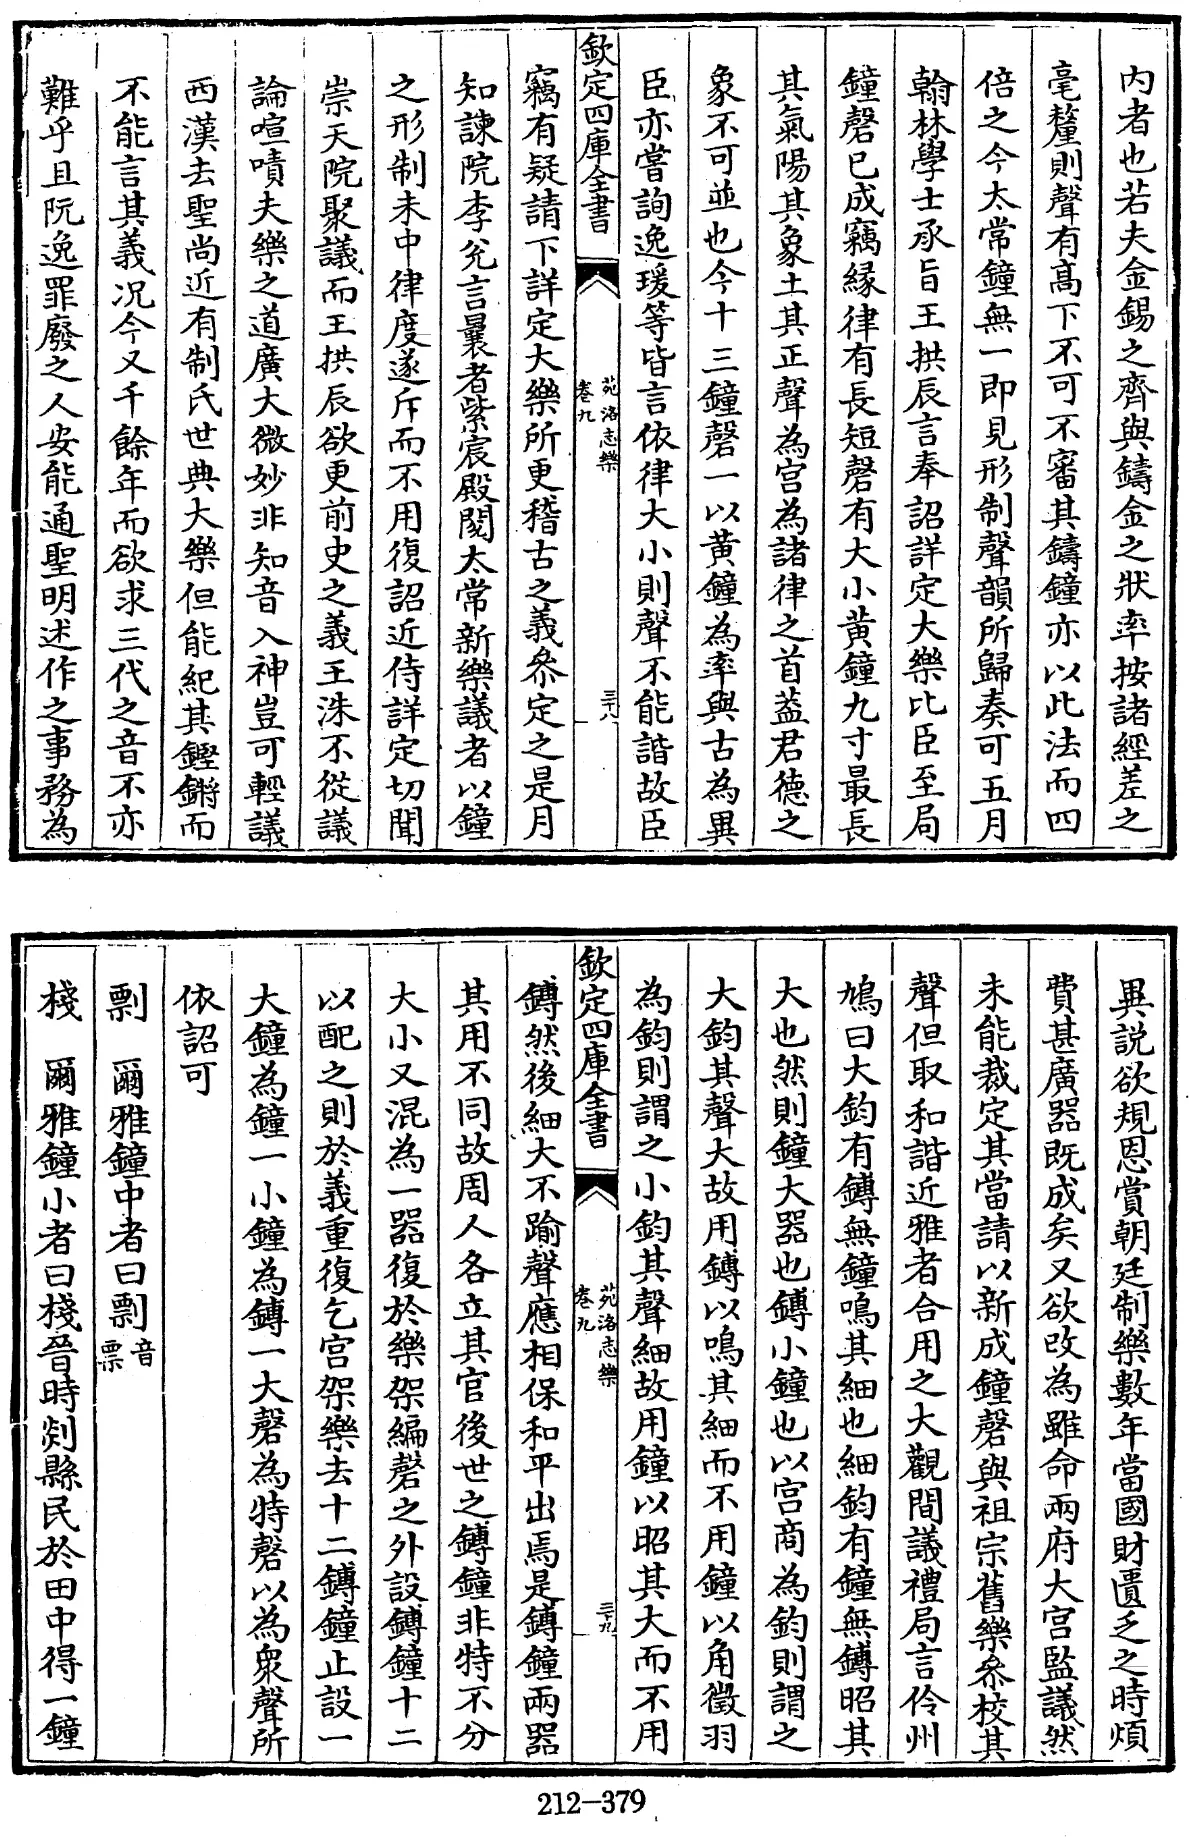 内者也若夫金錫之齊與鑄金之狀率按諸經差之
毫釐則聲有髙下不可不審其鑄鐘亦以此法而四
倍之今太常鐘無一即見形制聲韻所歸奏可五月
翰林學士承旨王拱辰言奉詔詳定大樂比臣至局
鐘磬已成竊縁律有長短磬有大小黄鐘九寸最長
其氣陽其象土其正聲為宫為諸律之首葢君德之
象不可並也今十三鐘磬一以黄鐘為率與古為異
臣亦嘗詢逸瑗等皆言依律大小則聲不能諧故臣
欽定四庫全書
苑洛志樂
卷九
三十八
竊有疑請下詳定大樂所更稽古之義叅定之是月
知諫院李兊言曩者紫宸殿閲太常新樂議者以鐘
之形制未中律度遂斥而不用復詔近侍詳定切聞
崇天院聚議而王拱辰欲更前史之義王洙不從議
論喧嘖夫樂之道廣大微妙非知音入神豈可輕議
西漢去聖尚近有制氏世典大樂但能紀其鏗鏘而
不能言其義况今又千餘年而欲求三代之音不亦
難乎且阮逸罪廢之人安能通聖明述作之事務為
異説欲規恩賞朝廷制樂數年當國財匱乏之時煩
費甚廣器既成矣又欲改為雖命兩府大宫監議然
未能裁定其當請以新成鐘磬與祖宗舊樂叅校其
聲但取和諧近雅者合用之大觀間議禮局言伶州
鳩曰大鈞有鎛無鐘鳴其細也細鈞有鐘無鎛昭其
大也然則鐘大器也鎛小鐘也以宫商為鈞則謂之
大鈞其聲大故用鎛以鳴其細而不用鐘以角徵羽
為鈞則謂之小鈞其聲細故用鐘以昭其大而不用
欽定四庫全書
苑洛志樂
卷九
三十九
鎛然後細大不踰聲應相保和平出焉是鎛鐘兩器
其用不同故周人各立其官後世之鎛鐘非特不分
大小又混為一器復於樂架編磬之外設鎛鐘十二
以配之則於義重復乞宫架樂去十二鎛鐘止設一
大鐘為鐘一小鐘為鎛一大磬為特磬以為衆聲所
依詔可
剽　爾雅鐘中者曰剽音票
棧　爾雅鐘小者曰棧晉時剡縣民於田中得一鐘
212-379